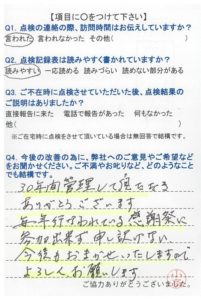 【項目に○をつけて下さい】
Q1. 点検の連絡の際、訪問時間はお伝えしていますか？
言われた 言われなかった その他( )
Q2. 点検記録表は読みやすく書かれていますか？
読みやすい 一応読める 読みづらい 読めない部分がある
Q3. ご不在時に点検させていただいた後、点検結果の
ご説明はありましたか？
直接報告に来た 電話で報告があった 何もなかった
他( )
※ご在宅時に点検をさせて頂いている場合は無回答で結構です。
Q4. 今後の改善の為に、弊社へのご意見やご希望など
をお聞かせください。ご不満やお叱りなど、どのようなこと
でも結構です。
30年間管理して頂き
ありがとうございます
毎年行なわれている感謝祭に
参加出来ず申し訳けない
今後もおまかせいたしますので
よろしくお願いします
ご協力ありがとうございました。